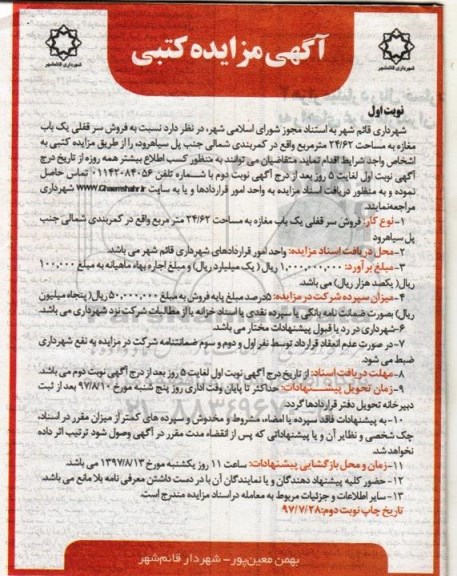 آگهی مزایده کتبی
شهرداری قائمشهر
شهرداری قائمشهر
نوبت اول
شهرداری قائم شهر به استناد مجوز شورای اسلامی شهر، در نظر دارد نسبت به فروش سر قفلی یک باب
مغازه به مساحت ۲۴/۶۲ مترمربع واقع در کمربندی شمالی جنب پل سیاهرود، را از طریق مزایده کتبی به
اشخاص واجد شرایط اقدام نماید. متقاضیان می توانند به منظور کسب اطلاع بیشتر همه روزه از تاریخ درج
آگهی نوبت اول لغایت ۵ روز بعد از درج آگهی نوبت دوم با شماره تلفن ۰۱۱۴۲۰۸۴۰۵۶ تماس حاصل
نموده و به منظور دریافت اسناد مزایده به واحد امور قراردادها و یا به سایت www.Ghaemshahr.ir شهرداری
مراجعه نمایند.
۱-نوع کار: فروش سر قفلی یک باب مغازه به مساحت ۲۴/۶۲ متر مربع واقع در کمربندی شمالی جنب
پل سیاهرود
۲-محل دریافت اسناد مزایده: واحد امور قراردادهای شهرداری قائم شهر می باشد.
۳-مبلغ برآورد: ۱,۰۰۰,۰۰۰,۰۰۰ ریال ( یک میلیارد ریال) و مبلغ اجاره بهاء ماهیانه به مبلغ ۱۰۰,۰۰۰
ریال( یکصد هزار ریال) می باشد.
۴-میزان سپرده شرکت در مزایده: ۵درصد مبلغ پایه فروش به مبلغ ۵۰,۰۰۰,۰۰۰ ریال( پنجاه میلیون
ریال) بصورت ضمانت نامه بانکی یا سپرده نقدی یا اسناد خزانه یا از مطالبات شرکت نزد شهرداری می باشد.
۶-شهرداری در رد یا قبول پیشنهادات مختار می باشد.
۷-در صورت عدم انعقاد قرارداد توسط نفر اول و دوم و سوم ضمانتنامه شرکت در مزایده به نفع شهرداری
ضبط می شود.
۸-مهلت دریافت اسناد: از تاریخ درج آگهی نوبت اول لغایت ۵ روز بعد از درج آگهی نوبت دوم می باشد.
۹-زمان تحویل پیشنهادات: حداکثر تا پایان وقت اداری روز پنج شنبه مورخ ۹۷/۸/۱۰ بعد از ثبت
دبیرخانه تحویل دفتر قراردادها گردد.
۱۰-به پیشنهادات فاقد سپرده یا امضاء، مشروط و مخدوش و سپرده های کمتر از میزان مقرر در اسناد،
چک شخصی و نظایر آن و یا پیشنهاداتی که پس از انقضاء مدت مقرر در آگهی وصول شود ترتیب اثر داده
نخواهد شد.
۱۱-زمان و محل بازگشایی پیشنهادات: ساعت ۱۱ روز یکشنبه مورخ ۱۳۹۷/۸/۱۳ می باشد.
۱۲-حضور کلیه پیشنهاد دهندگان و یا نمایندگان آن با در دست داشتن معرفی نامه بلا مانع می باشد.
۱۳-سایر اطلاعات و جزئیات مربوط به معامله در اسناد مزایده مندرج است.
تاریخ چاپ نوبت دوم: ۹۷/۷/۲۸
بهمن معین‌پور- شهردار قائم‌شهر